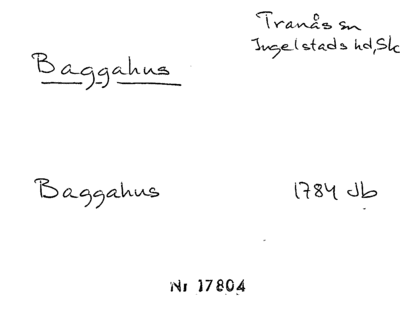 Tranås sn
Ingelstads hd, Sk
Baggahus
Baggahus 1784 Jb
Nr 17804